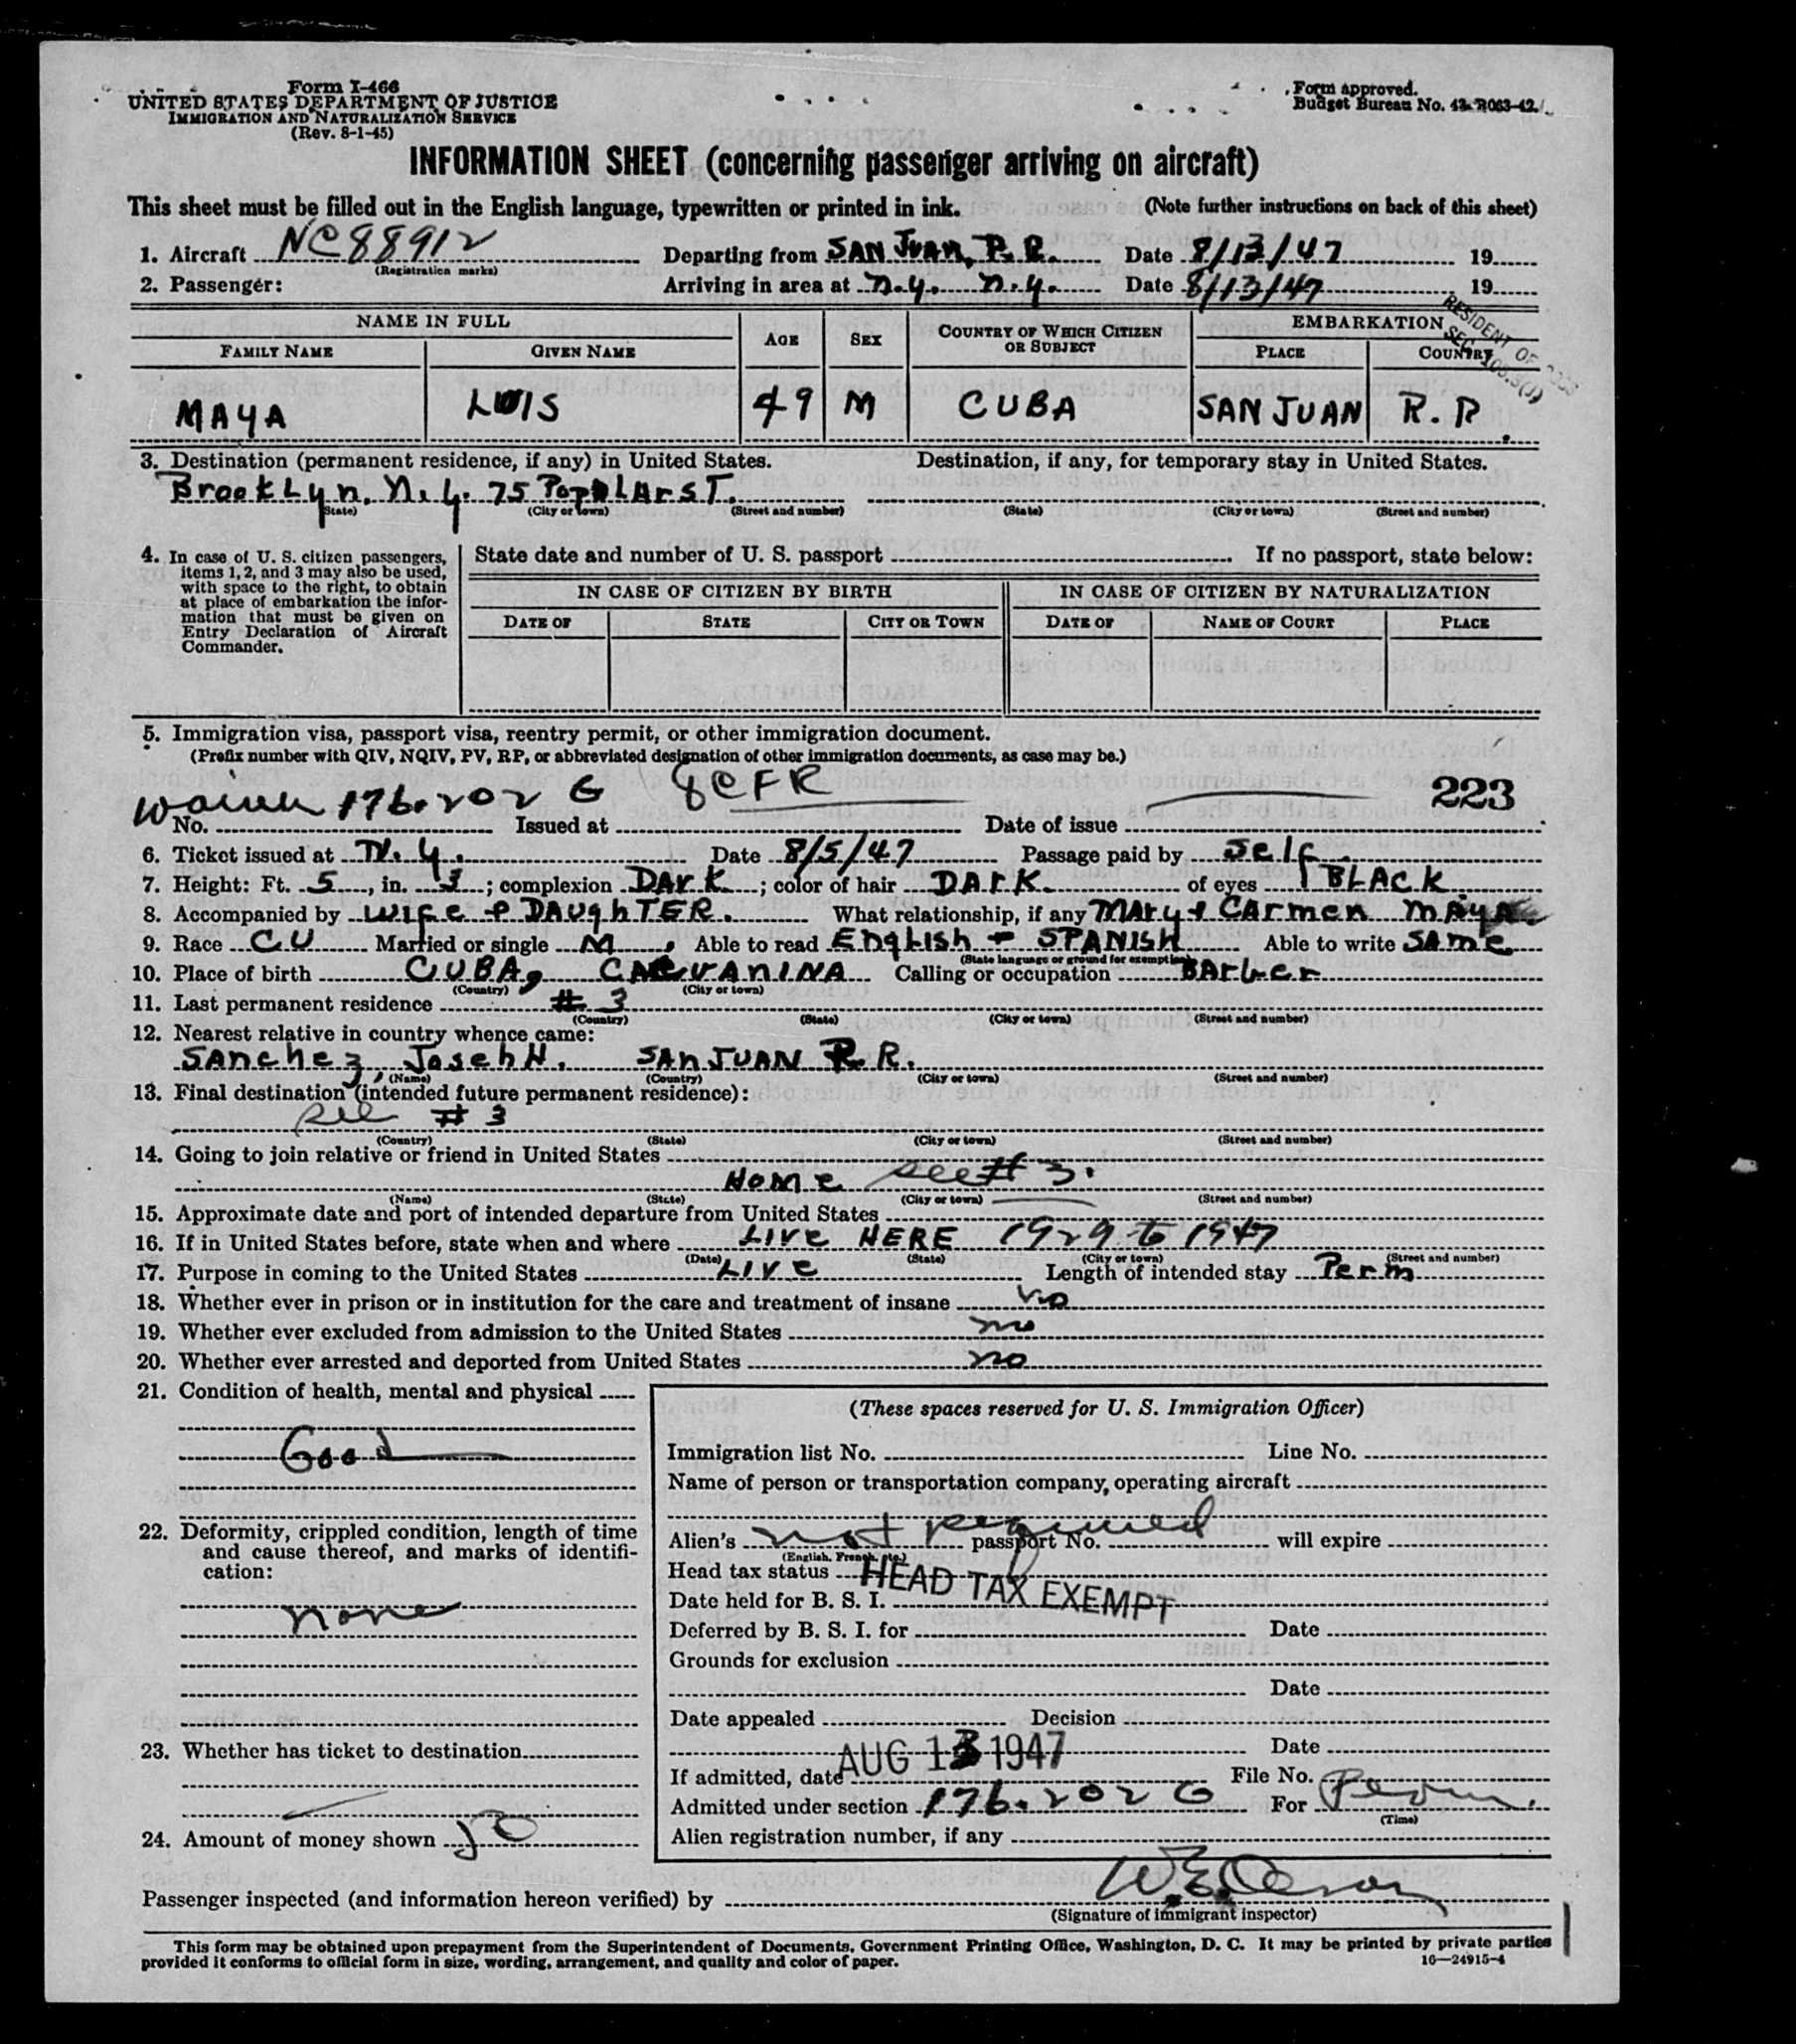 Form I-466
UNITED STATES DEPARTMENT OF JUSTICE
IMMIGRATION AND NATURALIZATION SERVICE
(Rev. 8-1-45)
Form approved.
Budget Bureau No. 43-R063-42.
INFORMATION SHEET (concerning passenger arriving on aircraft)
This sheet must be filled out in the English language, typewritten or printed in ink. (Note further instructions on back of this sheet)
1. Aircraft NC88912 Departing from SAN JUAN, P.R. Date 8/13/47 19
(Registration marks)
2. Passenger: Arriving in area at N.Y. N.Y. Date 8/13/47 19
RESIDENT OF
SEC. 
NAME IN FULL AGE SEX COUNTRY OF WHICH CITIZEN OR SUBJECT EMBARKATION
FAMILY NAME GIVEN NAME PLACE COUNTRY
MAYA LUIS 49 M CUBA SAN JUAN P.R.
3. Destination (permanent residence, if any) in United States. Destination, if any, for temporary stay in United States.
Brooklyn. N.Y. 75 Poplar ST.
(State) (City or town) (Street and number) (State) (City or town) (Street and number)
4. In case of U. S. citizen passengers, items 1, 2, and 3 may also be used, with space to the right, to obtain at place of embarkation the information that must be given on Entry Declaration of Aircraft Commander.
State date and number of U. S. passport If no passport, state below:
IN CASE OF CITIZEN BY BIRTH IN CASE OF CITIZEN BY NATURALIZATION
DATE OF STATE CITY OR TOWN DATE OF NAME OF COURT PLACE
5. Immigration visa, passport visa, reentry permit, or other immigration document.
(Prefix number with QIV, NQIV, PV, RP, or abbreviated designation of other immigration documents, as case may be.)
Waiver 176.202 G 8CFR 223
No. Issued at Date of issue
6. Ticket issued at N.Y. Date 8/5/47 Passage paid by Self
7. Height: Ft. 5, in. 3; complexion DArK; color of hair DArK. of eyes BLACK
8. Accompanied by wife & DAUghTER. What relationship, if any MAry & CArmen MAYA
9. Race CU Married or single M, Able to read English & SPANISH Able to write SAme
(State language or ground for exemption)
10. Place of birth CUBA, Calling or occupation BArber
(Country) (City or town)
11. Last permanent residence # 3
(Country) (State) (City or town) (Street and number)
12. Nearest relative in country whence came:
SAnchez, JosephH. SAnJUAN P.R.
(Name) (Country) (City or town) (Street and number)
13. Final destination (intended future permanent residence):
see # 3
(Country) (State) (City or town) (Street and number)
14. Going to join relative or friend in United States
Home see # 3.
(Name) (State) (City or town) (Street and number)
15. Approximate date and port of intended departure from United States
16. If in United States before, state when and where LIVe HERE 1929 to 1947
(Date) (State) (City or town) (Street and number)
17. Purpose in coming to the United States LIVe Length of intended stay Perm
18. Whether ever in prison or in institution for the care and treatment of insane no
19. Whether ever excluded from admission to the United States no
20. Whether ever arrested and deported from United States no
21. Condition of health, mental and physical
Good
22. Deformity, crippled condition, length of time and cause thereof, and marks of identification:
none
23. Whether has ticket to destination
24. Amount of money shown 50
(These spaces reserved for U. S. Immigration Officer)
Immigration list No. Line No.
Name of person or transportation company, operating aircraft
Alien's not required passport No. will expire
(English, French, etc.)
Head tax status HEAD TAX EXEMPT
Date held for B. S. I.
Deferred by B. S. I. for Date
Grounds for exclusion
Date
Date appealed Decision
Date
If admitted, date AUG 13 1947 File No.
Admitted under section 176.202 G For Perm.
(Time)
Alien registration number, if any
Passenger inspected (and information hereon verified) by
(Signature of immigrant inspector)
This form may be obtained upon prepayment from the Superintendent of Documents, Government Printing Office, Washington, D. C. It may be printed by private parties
provided it conforms to official form in size, wording, arrangement, and quality and color of paper. 16—24915-4